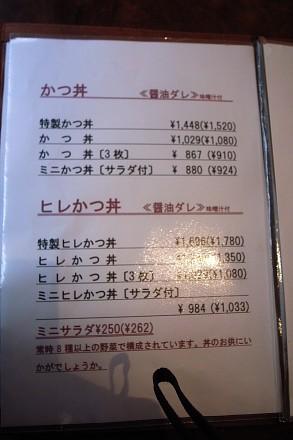 かつ丼 ≪醤油ダレ≫味噌汁付
特製かつ丼 ¥1,448(¥1,520)
か つ 丼 ¥1,029(¥1,080)
か つ 丼〔3枚〕 ¥ 867 (¥910)
ミニかつ丼〔サラダ付〕 ¥ 880 (¥924)
ヒレかつ丼 ≪醤油ダレ≫味噌汁付
特製ヒレかつ丼 ¥1,696(¥1,780)
ヒ レ か つ 丼 ,350)
ヒ レ か つ 丼〔3枚〕 ¥1,029(¥1,080)
ミニヒレかつ丼〔サラダ付〕
¥ 984 (¥1,033)
ミニサラダ¥250(¥262)
常時8種以上の野菜で構成されています。丼のお供にい
かがでしょうか。